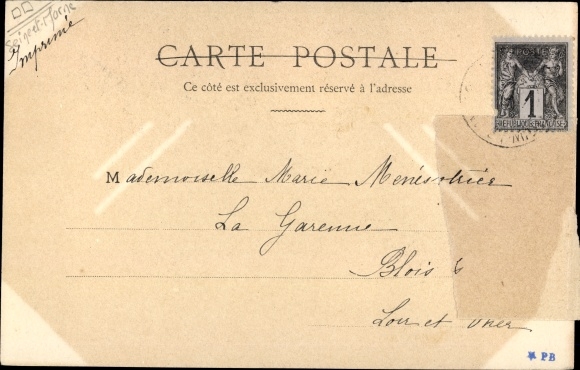 Seine et Marne
Imprimé
CARTE POSTALE
Ce côté est exclusivement réservé à l'adresse
POSTE
1
RÉPUBLIQUE FRANÇAISE
Mademoiselle Marie
La Garenne
Blois
Loir et Cher
PB